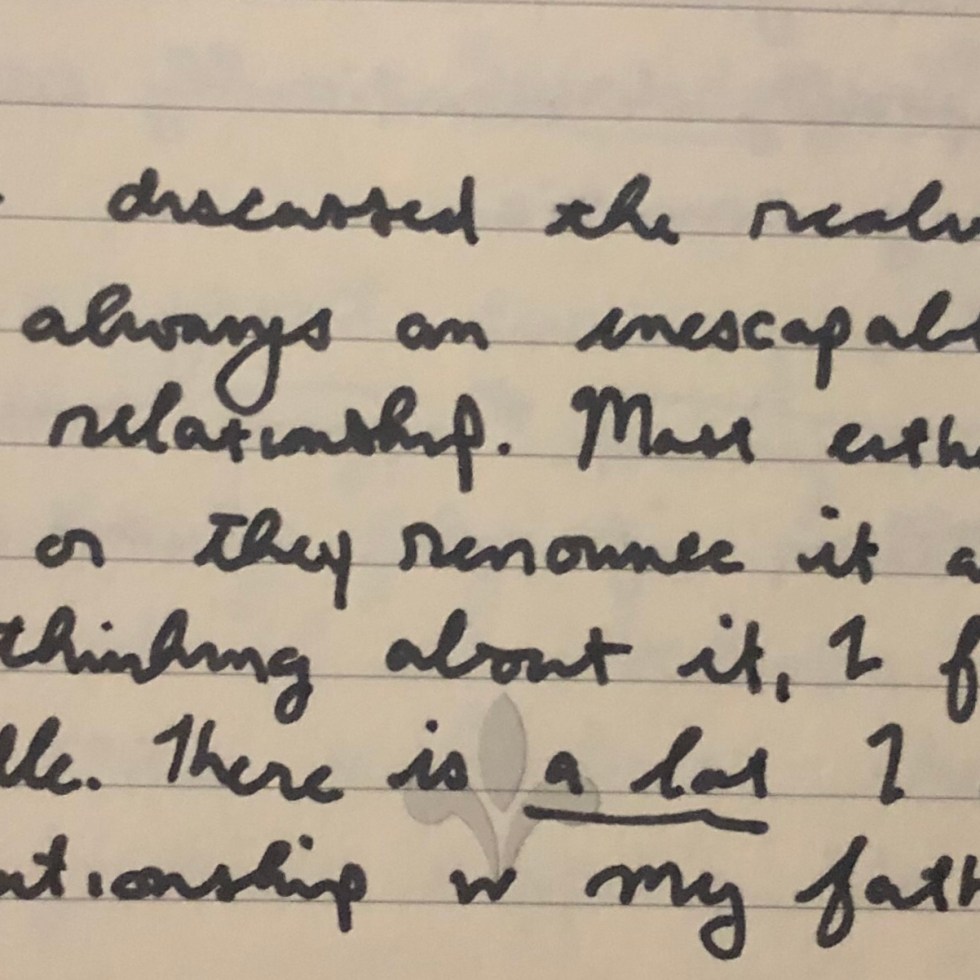 discussed the realu
always an inescapabl
relationship. Most eith
or they renounce it a
thinking about it, I f
lle. There is a lot I
ationship w my fath